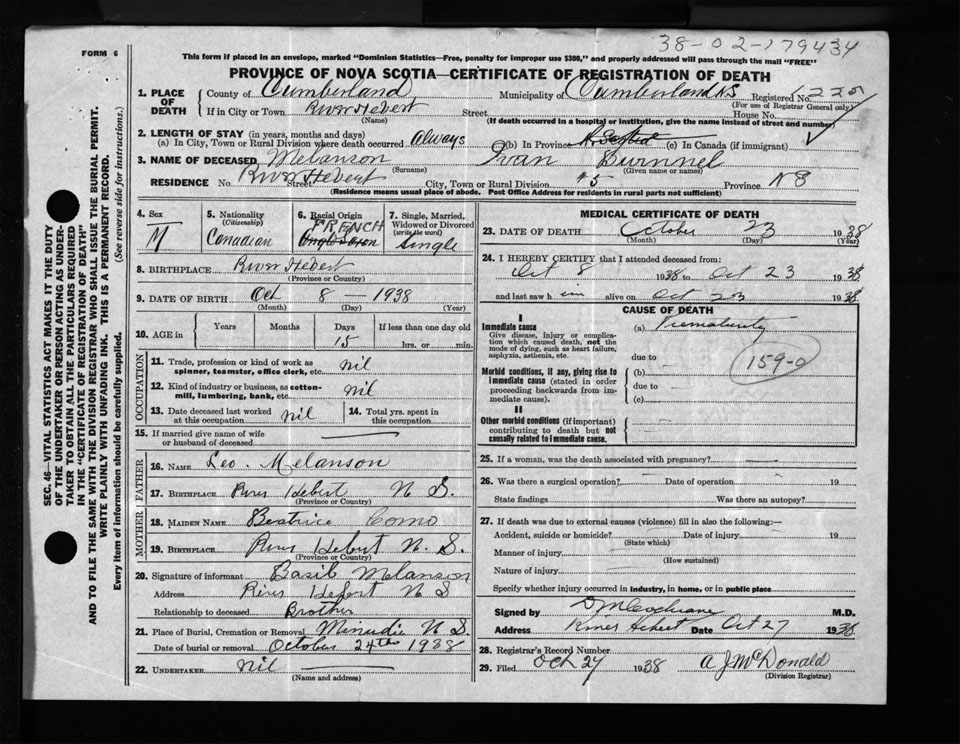 38-02-179434
FORM 6
This form if placed in an envelope, marked "Dominion Statistics—Free, penalty for improper use $300," and properly addressed will pass through the mail "FREE"
PROVINCE OF NOVA SCOTIA—CERTIFICATE OF REGISTRATION OF DEATH
1. PLACE OF DEATH
County of Cumberland Municipality of Cumberland N.S Registered No.
(For use of Registrar General only)
If in City or Town River Hebert Street House No.
(Name) (If death occurred in a hospital or institution, give the name instead of street and number)
2. LENGTH OF STAY (in years, months and days)
(a) In City, Town or Rural Division where death occurred Always (b) In Province N. Scotia (c) In Canada (if immigrant)
3. NAME OF DECEASED Melanson Ivan Burnnel
(Surname) (Given name or names)
RESIDENCE No. River Hebert Street City, Town or Rural Division #5 Province NS
(Residence means usual place of abode. Post Office Address for residents in rural parts not sufficient)
4. Sex
M
5. Nationality
(Citizenship)
Canadian
6. Racial Origin
FRENCH
Anglo Saxon
7. Single, Married, Widowed or Divorced
(write the word)
Single
8. BIRTHPLACE River Hebert
(Province or Country)
9. DATE OF BIRTH Oct 8 — 1938
(Month) (Day) (Year)
10. AGE in Years Months Days If less than one day old
15 hrs. or min.
OCCUPATION
11. Trade, profession or kind of work as
spinner, teamster, office clerk, etc. nil
12. Kind of industry or business, as cotton-
mill, lumbering, bank, etc. nil
13. Date deceased last worked
at this occupation nil
14. Total yrs. spent in
this occupation
15. If married give name of wife
or husband of deceased
FATHER
16. NAME Leo. Melanson
17. BIRTHPLACE River Hebert N S.
(Province or Country)
MOTHER
18. MAIDEN NAME Beatrice Como
19. BIRTHPLACE River Hebert N. S.
(Province or Country)
20. Signature of informant Basil Melanson
Address River Hebert N S
Relationship to deceased Brother
21. Place of Burial, Cremation or Removal Minudie N S.
Date of burial or removal October 24th 1938
22. UNDERTAKER nil
(Name and address)
MEDICAL CERTIFICATE OF DEATH
23. DATE OF DEATH October 23 1938
(Month) (Day) (Year)
24. I HEREBY CERTIFY that I attended deceased from:
Oct 8 1938 to Oct 23 1938
and last saw h im alive on Oct 23 1938
CAUSE OF DEATH
I
Immediate cause
Give disease, injury or complication which caused death, not the mode of dying, such as heart failure, asphyxia, asthenia, etc.
(a) Prematurity
due to
Morbid conditions, if any, giving rise to immediate cause (stated in order proceeding backwards from immediate cause).
(b)
due to
(c)
159-0
II
Other morbid conditions (if important) contributing to death but not causally related to immediate cause.
25. If a woman, was the death associated with pregnancy?
26. Was there a surgical operation? Date of operation 19
State findings Was there an autopsy?
27. If death was due to external causes (violence) fill in also the following:—
Accident, suicide or homicide? Date of injury 19
(State which)
Manner of injury
(How sustained)
Nature of injury
Specify whether injury occurred in industry, in home, or in public place
Signed by D M Cochrane M.D.
Address River Hebert Date Oct 27 1938
28. Registrar's Record Number
29. Filed Oct 27 1938 A J McDonald
(Division Registrar)
SEC. 46—VITAL STATISTICS ACT MAKES IT THE DUTY
OF THE UNDERTAKER OR PERSON ACTING AS UNDER-
TAKER TO OBTAIN ALL THE PARTICULARS REQUIRED
IN THE "CERTIFICATE OF REGISTRATION OF DEATH"
AND TO FILE THE SAME WITH THE DIVISION REGISTRAR WHO SHALL ISSUE THE BURIAL PERMIT.
WRITE PLAINLY WITH UNFADING INK. THIS IS A PERMANENT RECORD.
Every item of information should be carefully supplied. (See reverse side for instructions.)